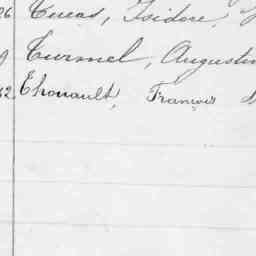 26 Cucas, Isidore,
9 Curmel, Augustin
62 Chouault, François